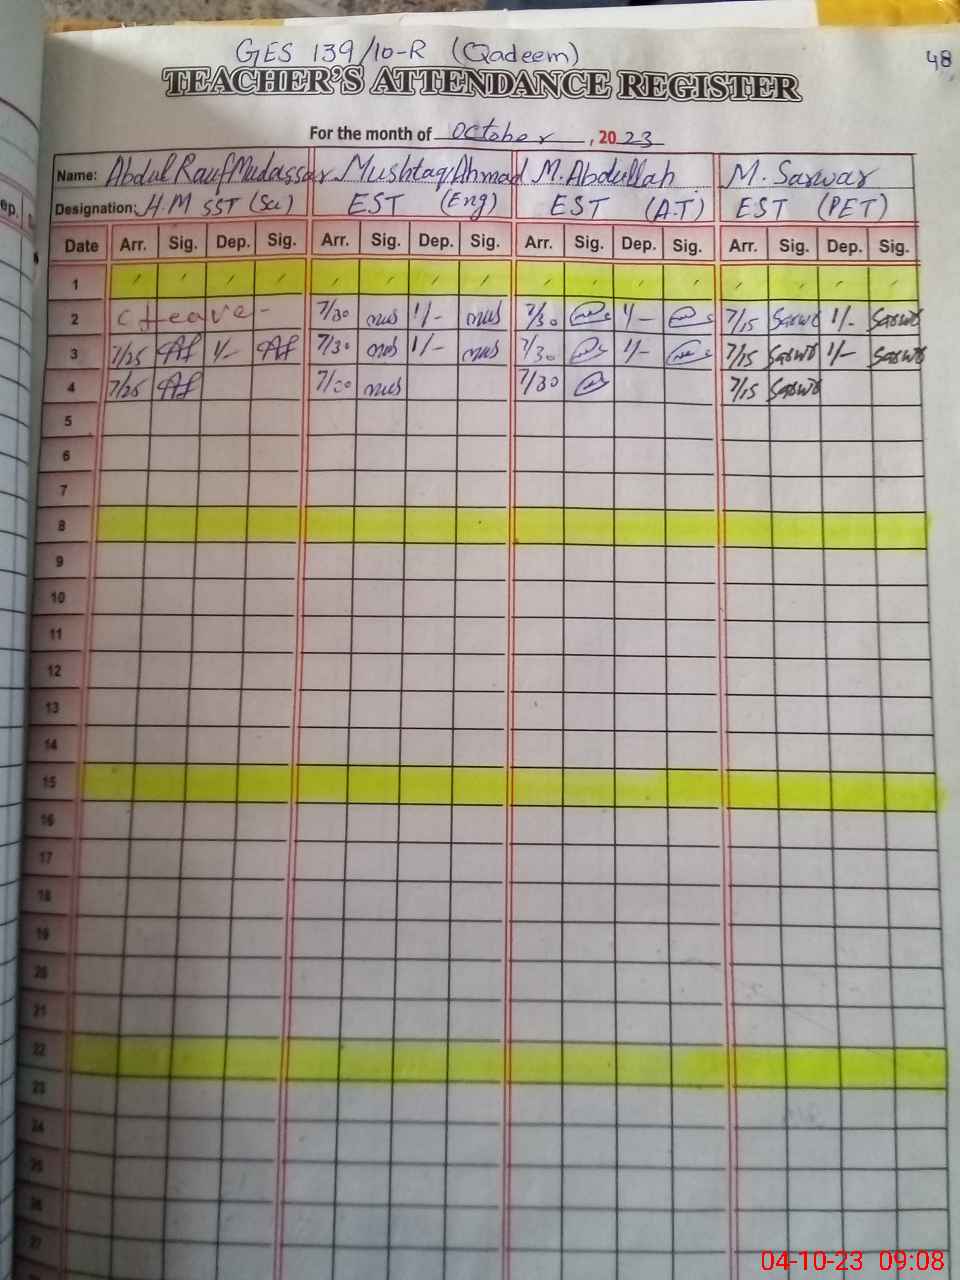 GES 139/10-R (Qadeem)
48
TEACHER'S ATTENDANCE REGISTER
For the month of October, 2023
Name: Abdul Rauf Mudassar Mushtaq Ahmad M. Abdullah M. Sarwar
ep.
Designation: H.M SST (Sc) EST (Eng) EST (A.T) EST (PET)
Date Arr. Sig. Dep. Sig. Arr. Sig. Dep. Sig. Arr. Sig. Dep. Sig. Arr. Sig. Dep. Sig.
1
2 C leave - 7/30 1/- 7/30 1/- 7/15 Sarwar 1/- Sarwar
3 7/25 1/- 7/30 1/- 7/30 1/- 7/15 Sarwar 1/- Sarwar
4 7/25 7/30 7/30 7/15 Sarwar
5
6
7
8
9
10
11
12
13
14
15
16
17
18
19
20
21
22
23
24
25
26
27
04-10-23 09:08